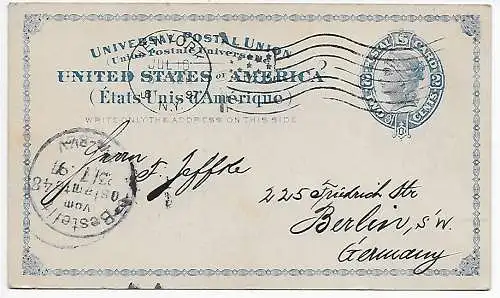 UNIVERSAL POSTAL UNION
(Union Postale Universelle)
UNITED STATES OF AMERICA
(États-Unis d'Amérique)
WRITE ONLY THE ADDRESS ON THIS SIDE
NEW YORK
JUL 16
N.Y.
POSTAL CARD
TWO CENTS
Herrn F. Jeffke
225 Friedrich Str
Berlin, S.W.
Germany
Bestellt
vom
Postamte 48